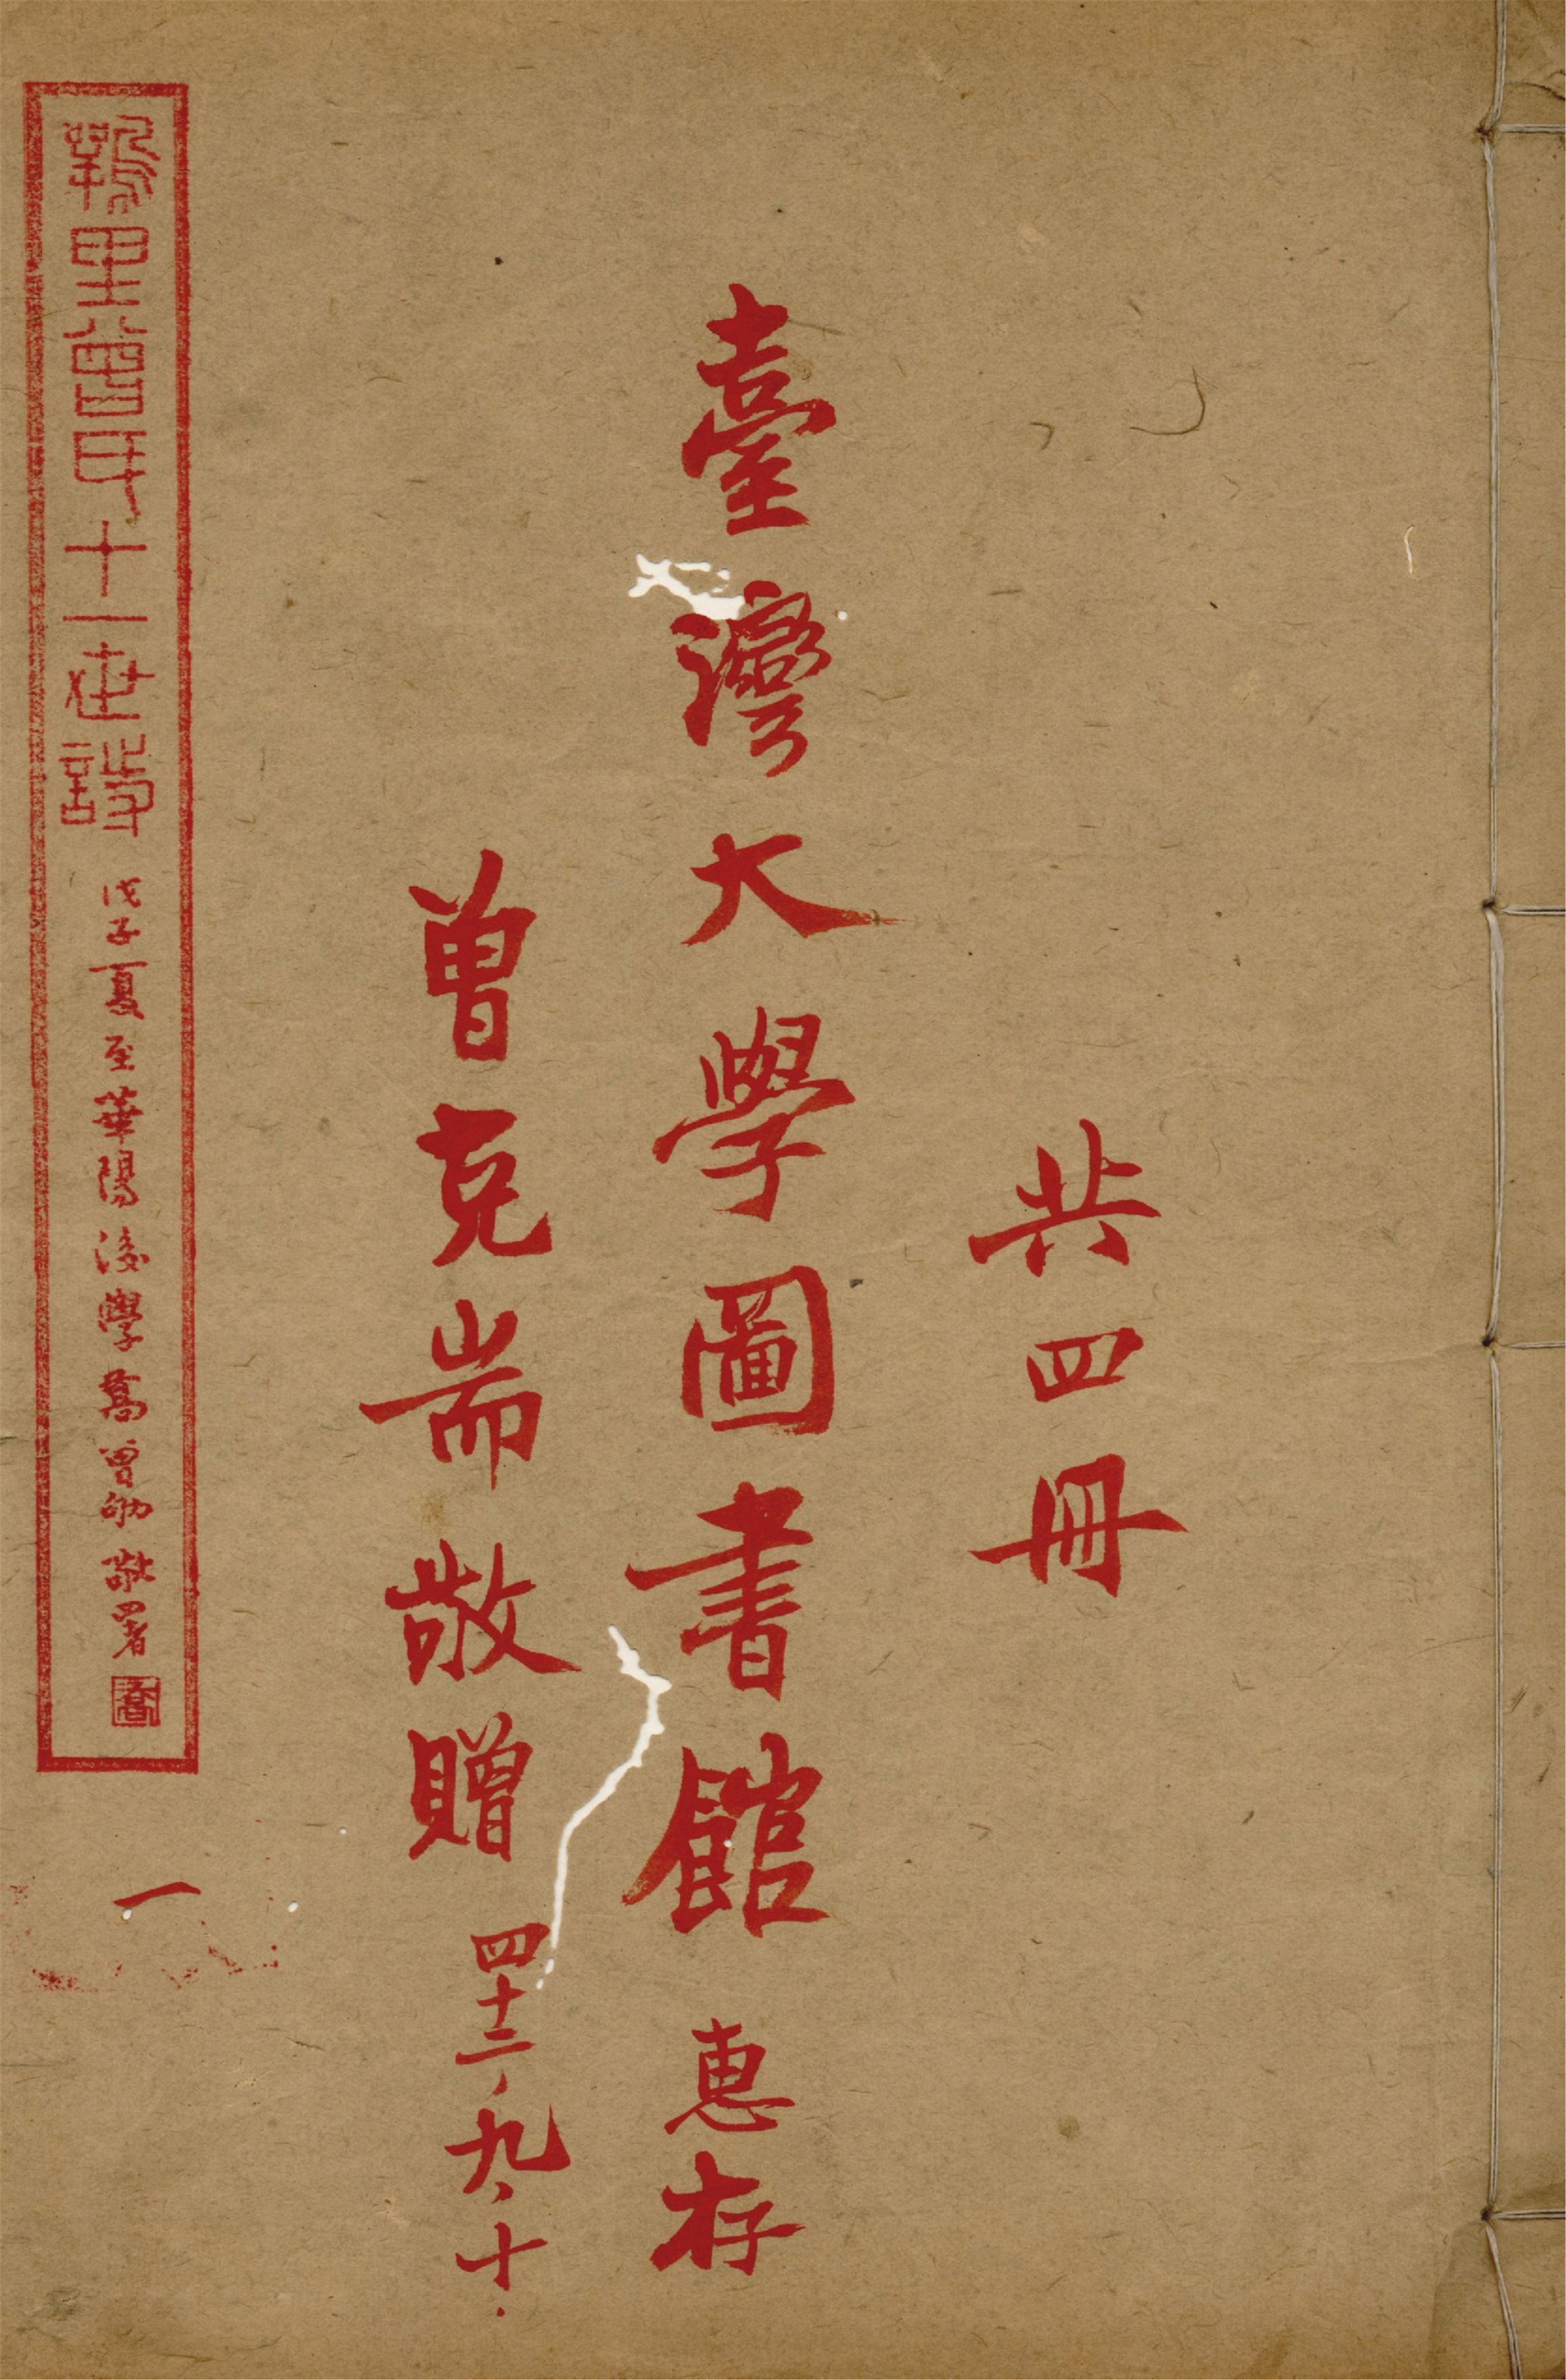 共四冊
臺灣大學圖書館 惠存
曾克耑敬贈 四十二、九、十.
里曾氏十一世詩 戊子夏至華陽後學喬曾劬敬署 喬
一